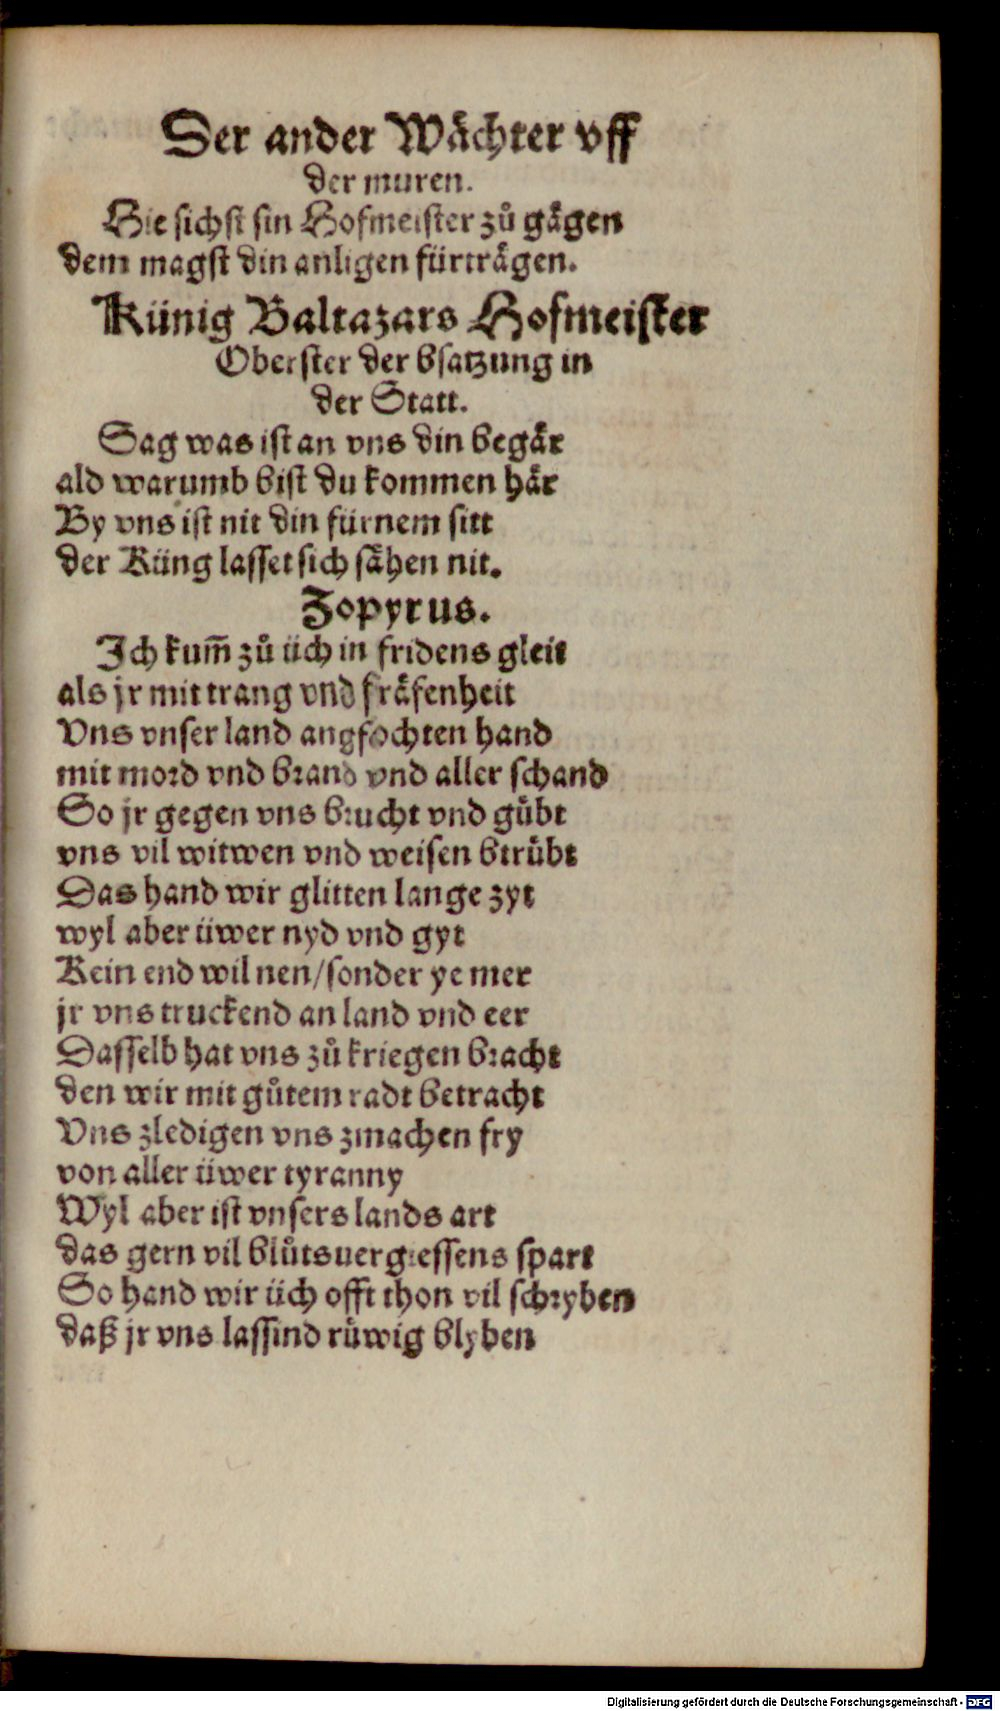 Der ander Wächter vff
der muren.
Hie sichst sin Hofmeister zů gägen
dem magst din anligen fürträgen.
Künig Baltazars Hofmeister
Oberster der bsatzung in
der Statt.
Sag was ist an vns din begär
ald warumb bist du kommen här
By vns ist nit din fürnem sitt
der Küng lasset sich sähen nit.
Zopyrus.
Ich kum̃ zů üch in fridens gleit
als jr mit trang vnd fräfenheit
Vns vnser land angfochten hand
mit mord vnd brand vnd aller schand
So jr gegen vns brucht vnd gůbt
vns vil witwen vnd weisen btrůbt
Das hand wir glitten lange zyt
wyl aber üwer nyd vnd gyt
Kein end wil nen/sonder ye mer
jr vns truckend an land vnd eer
Dasselb hat vns zů kriegen bracht
den wir mit gůtem radt betracht
Vns zledigen vns zmachen fry
von aller üwer tyranny
Wyl aber ist vnsers lands art
das gern vil blůtsuergiessens spart
So hand wir üch offt thon vil schryben
daß jr vns lassind růwig blyben
Digitalisierung gefördert durch die Deutsche Forschungsgemeinschaft - DFG